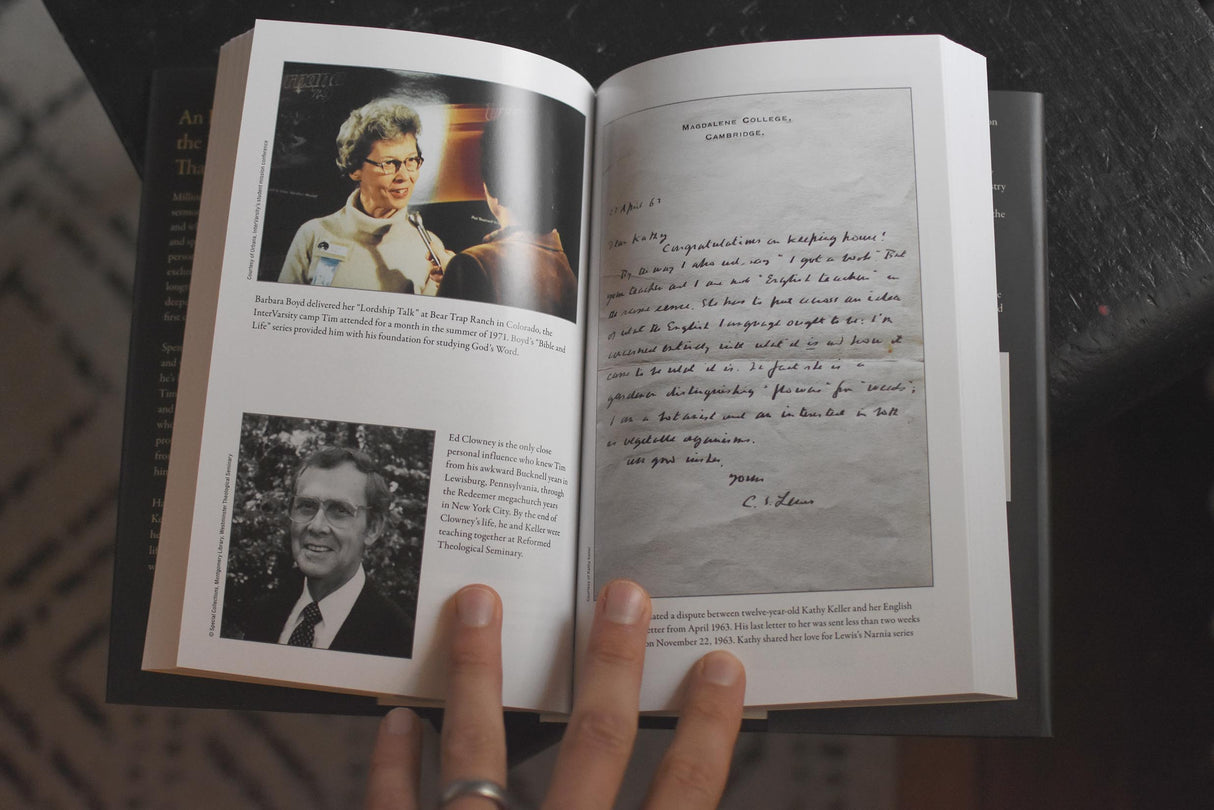 An
the
Tha
Millio
sermo
and w
and sp
perso
exclu
longt
deepe
first c
Spen
and
he's
Tim
and
who
pro
fro
him
Courtesy of Urbana, InterVarsity's student mission conference
Barbara Boyd delivered her “Lordship Talk” at Bear Trap Ranch in Colorado, the
InterVarsity camp Tim attended for a month in the summer of 1971. Boyd's “Bible and
Life” series provided him with his foundation for studying God's Word.
© Special Collections, Montgomery Library, Westminster Theological Seminary
Ed Clowney is the only close
personal influence who knew Tim
from his awkward Bucknell years in
Lewisburg, Pennsylvania, through
the Redeemer megachurch years
in New York City. By the end of
Clowney's life, he and Keller were
teaching together at Reformed
Theological Seminary.
Magdalene College,
Cambridge.
April 63
Dear Kathy
Congratulations on keeping house!
By the way I also wd. say “I got a book”. But
your teacher and I are not “English teachers” in
the same sense. She has to put across an idea
of what the English language ought to be: I'm
concerned entirely with what it is and how it
came to be what it is. In fact she is a
gardener distinguishing ‘flowers’ from ‘weeds’;
I am a botanist and am interested in both
as vegetable organisms.
All good wishes.
Yours
C. S. Lewis
Courtesy of Kathy Keller
ated a dispute between twelve-year-old Kathy Keller and her English
etter from April 1963. His last letter to her was sent less than two weeks
on November 22, 1963. Kathy shared her love for Lewis's Narnia series
on
stry
the